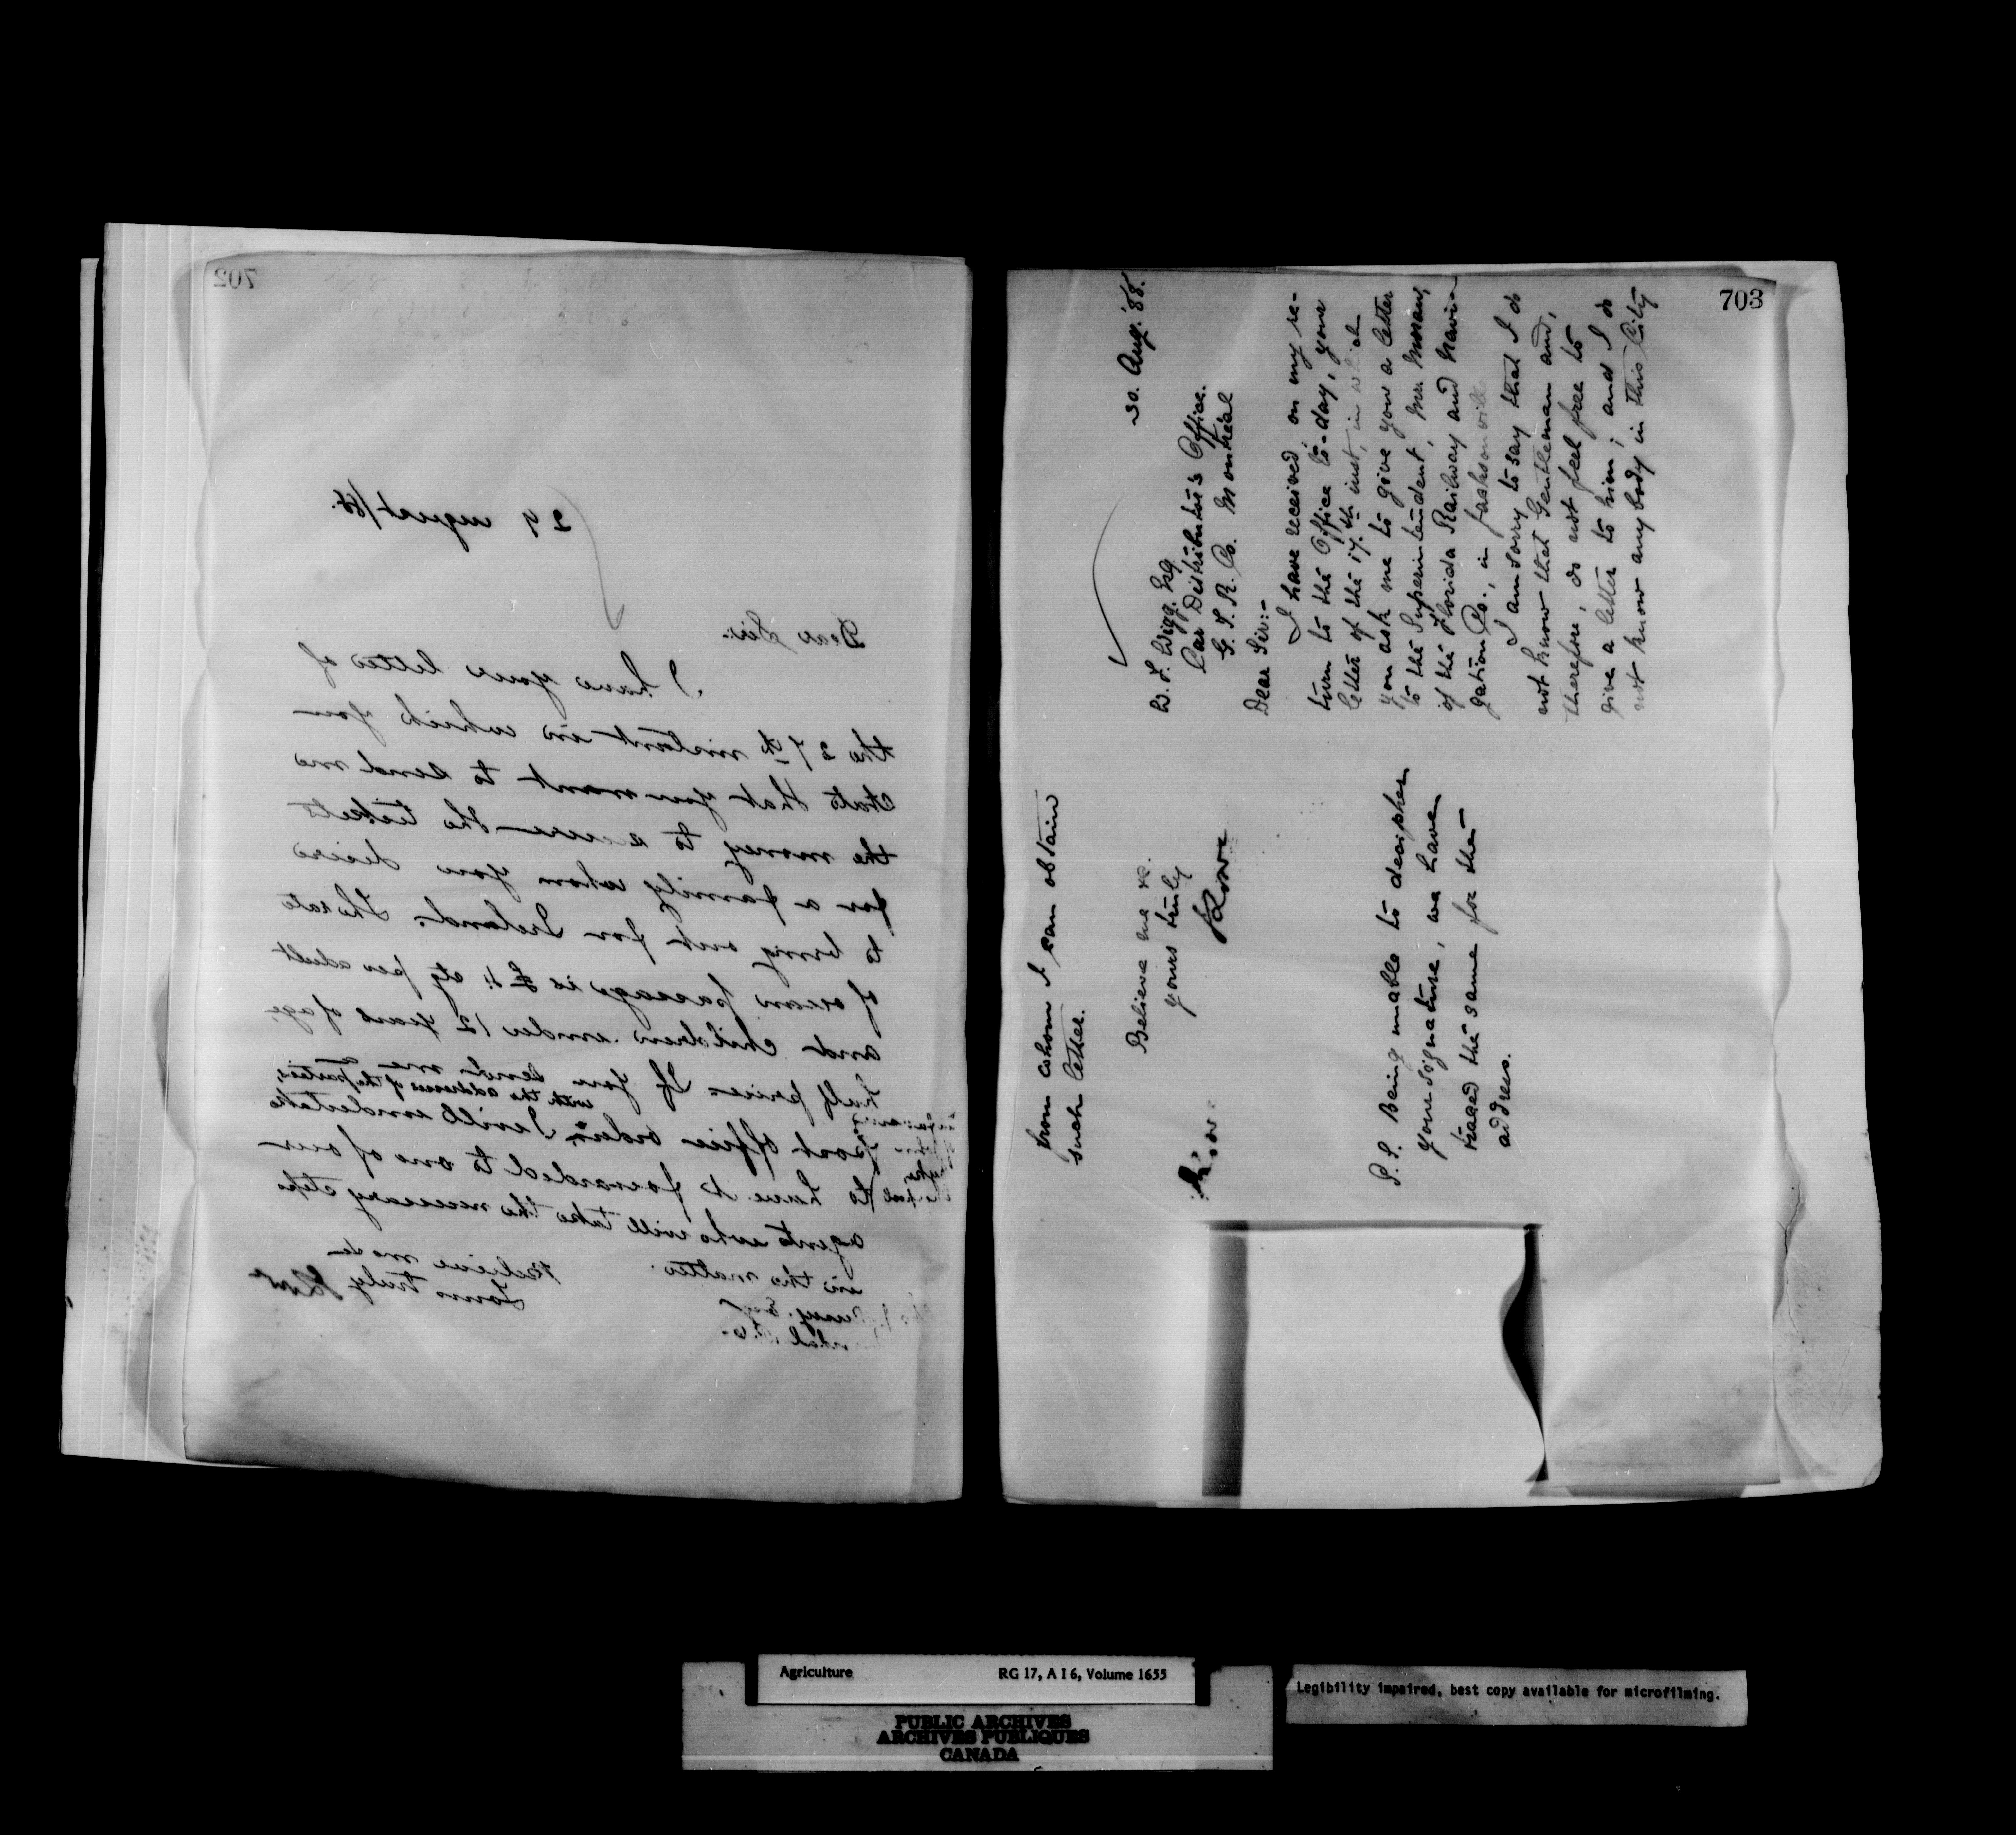 702
29 august/88.
Dear Sir:
I have your letter of
the 27th instant in which you
state that you want to send me
the money to secure the tickets
for a family whom you desire
to bring out for Ireland. The rate
of ocean passage is £4 stg per adult
and children under 12 years of age,
half price. If you send me
with the addresses of the parties,
post office order, I will undertake
to have it forwarded to one of our
agents who will take the necessary steps
in the matter.
Believe me
Yours truly
Lowe
703
30. Aug. '88.
W. T. Wigg. Esq
Car Distributor's Office.
G. T. R. Co. Montreal
Dear Sir:-
I have received, on my re-
turn to the Office to-day, your
letter of the 17.th inst, in which
you ask me to give you a letter
to the Superintendent, Mr.
of the Florida Railway and Navi
gation Co., in Jacksonville
I am sorry to say that I do
not know that Gentleman and,
therefore, do not feel free to
give a letter to him; and I do
not know any body in this City
from whom I can obtain
such letter.
Believe me
yours truly
Lowe
P. S. Being unable to decipher
your signature, we have
traced the same for the
address.
Agriculture RG 17, A I 6, Volume 1655
PUBLIC ARCHIVES
ARCHIVES PUBLIQUES
CANADA
Legibility impaired, best copy available for microfilming.